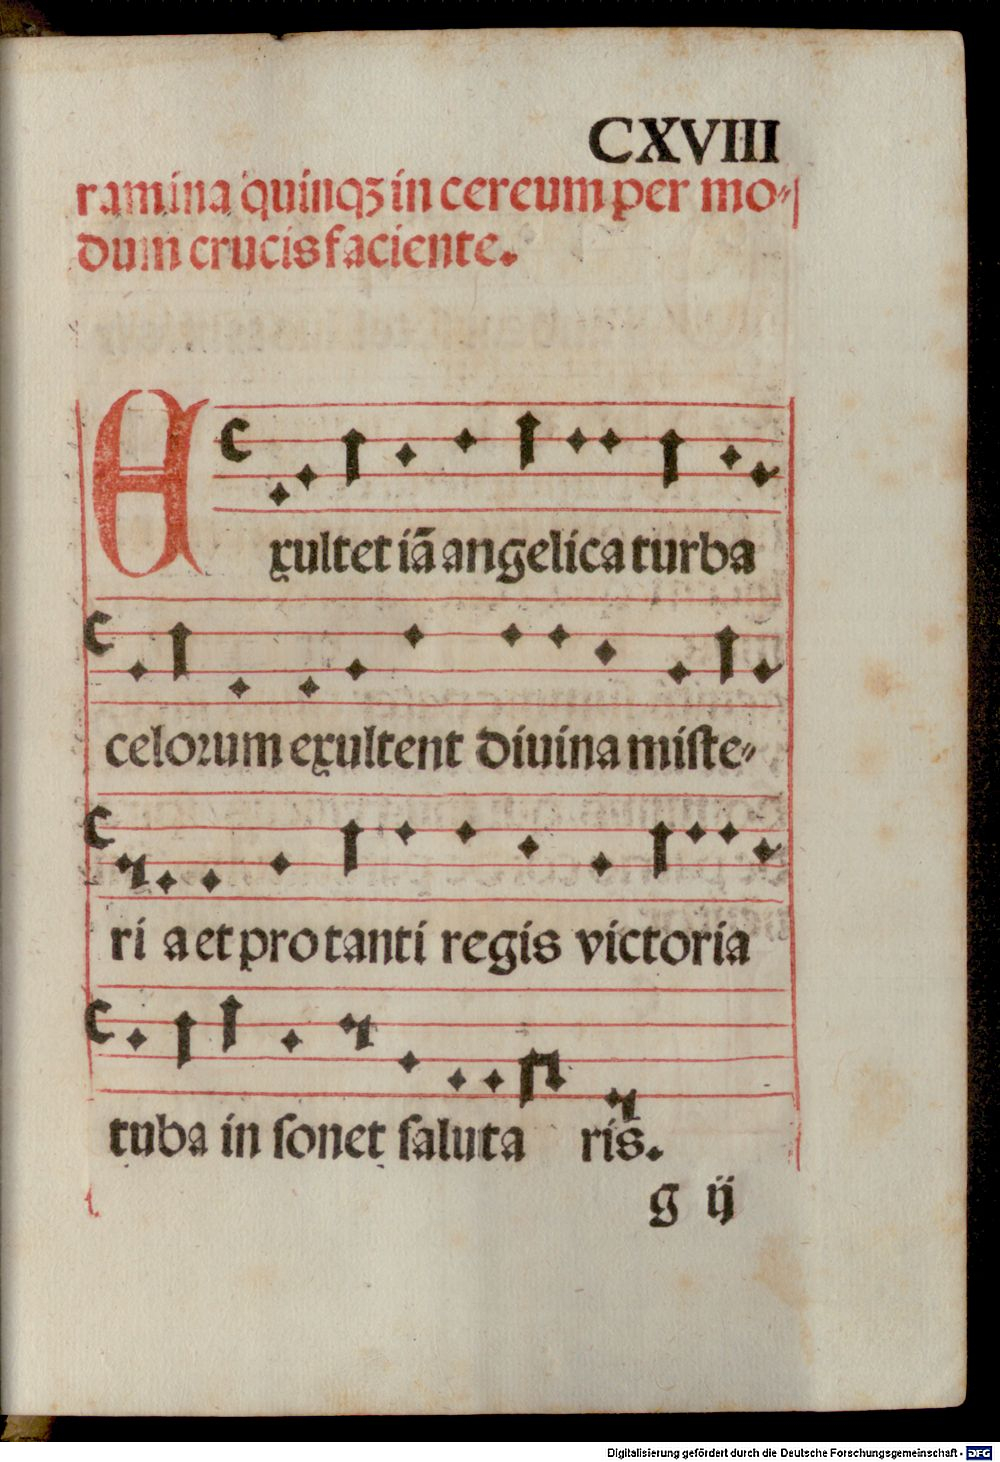 CXVIII
ramina quinqꝫ in cereum per mo⸗
dum crucis faciente.
Exultet iā angelica turba
celoꝝum exultent diuina miſte⸗
ri a et pro tanti regis victoria
tuba in ſonet ſaluta ris.
g ij
Digitalisierung gefördert durch die Deutsche Forschungsgemeinschaft - DFG